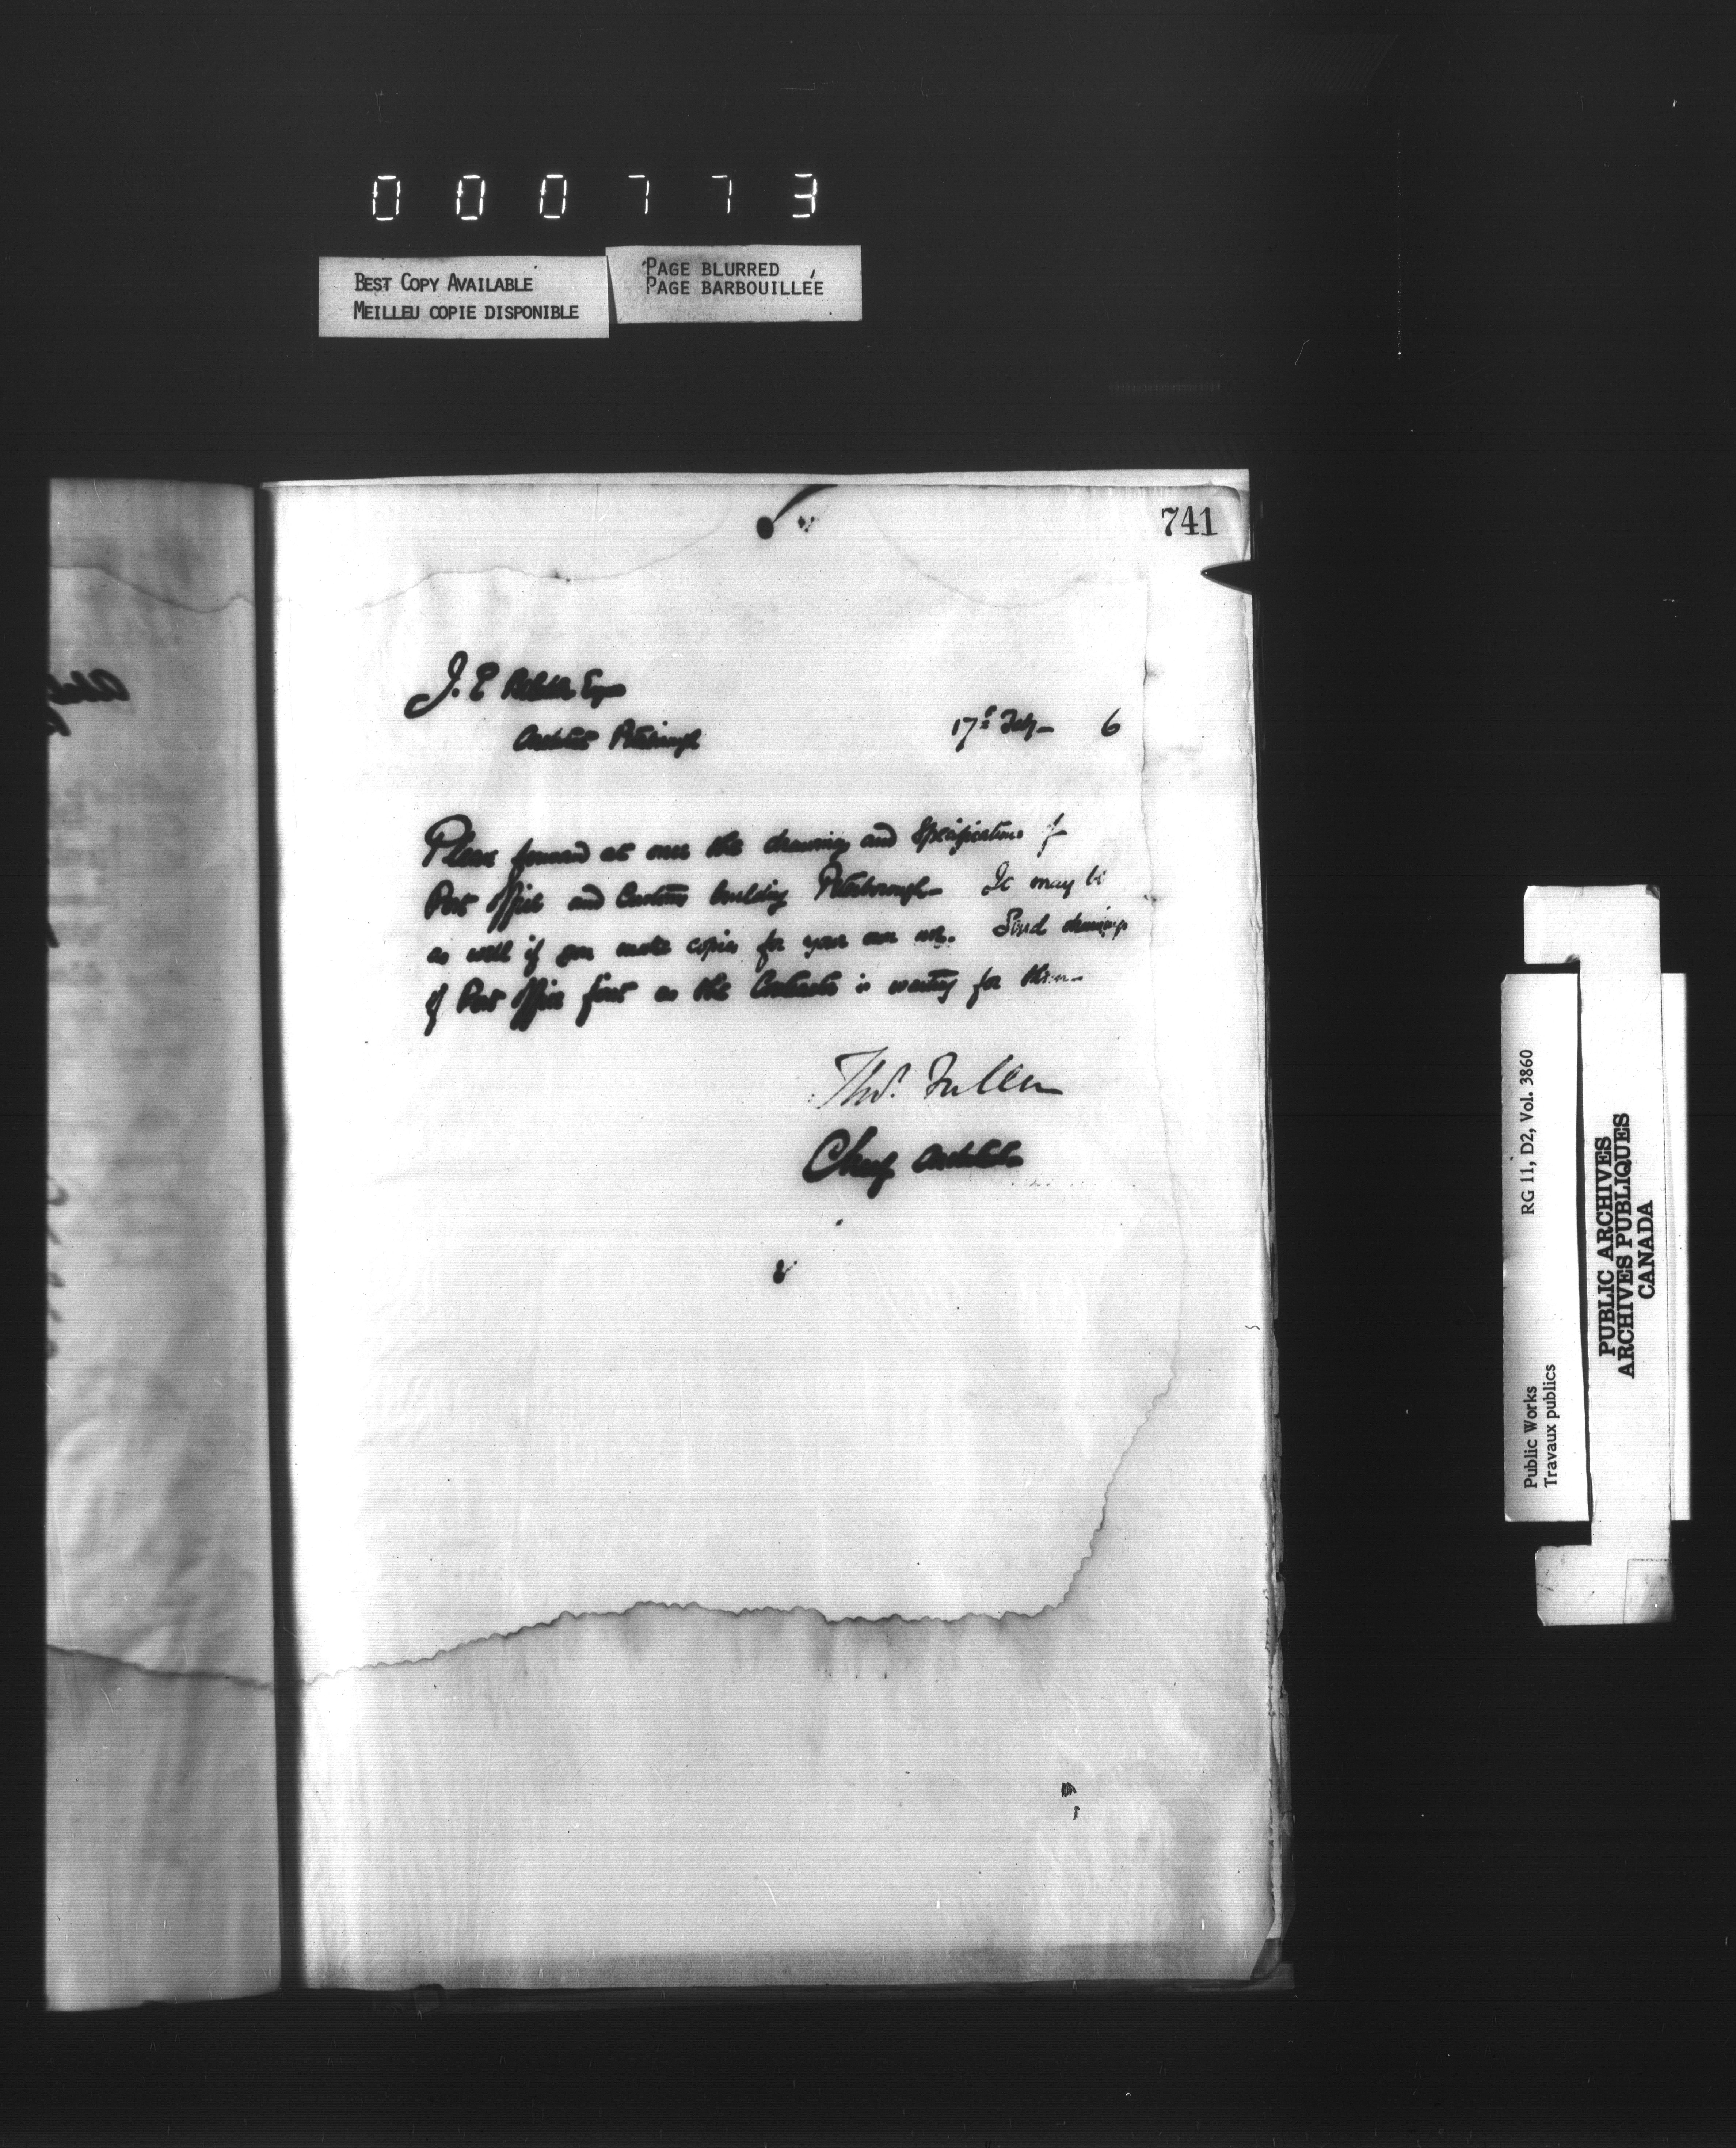 000773
BEST COPY AVAILABLE
MEILLEU COPIE DISPONIBLE
PAGE BLURRED
PAGE BARBOUILLÉE
741
J. E. Esqr
Architect Peterborough
17th Feby 6
Please forward at once the drawings and Specifications for
Post Office and Customs building Peterborough. It may be
as well if you make copies for your own use. Send drawings
of Post Office first as the Contractor is waiting for them
Thos. Fuller
Chief Architect
Public Works
Travaux publics
RG 11, D2, Vol. 3860
PUBLIC ARCHIVES
ARCHIVES PUBLIQUES
CANADA